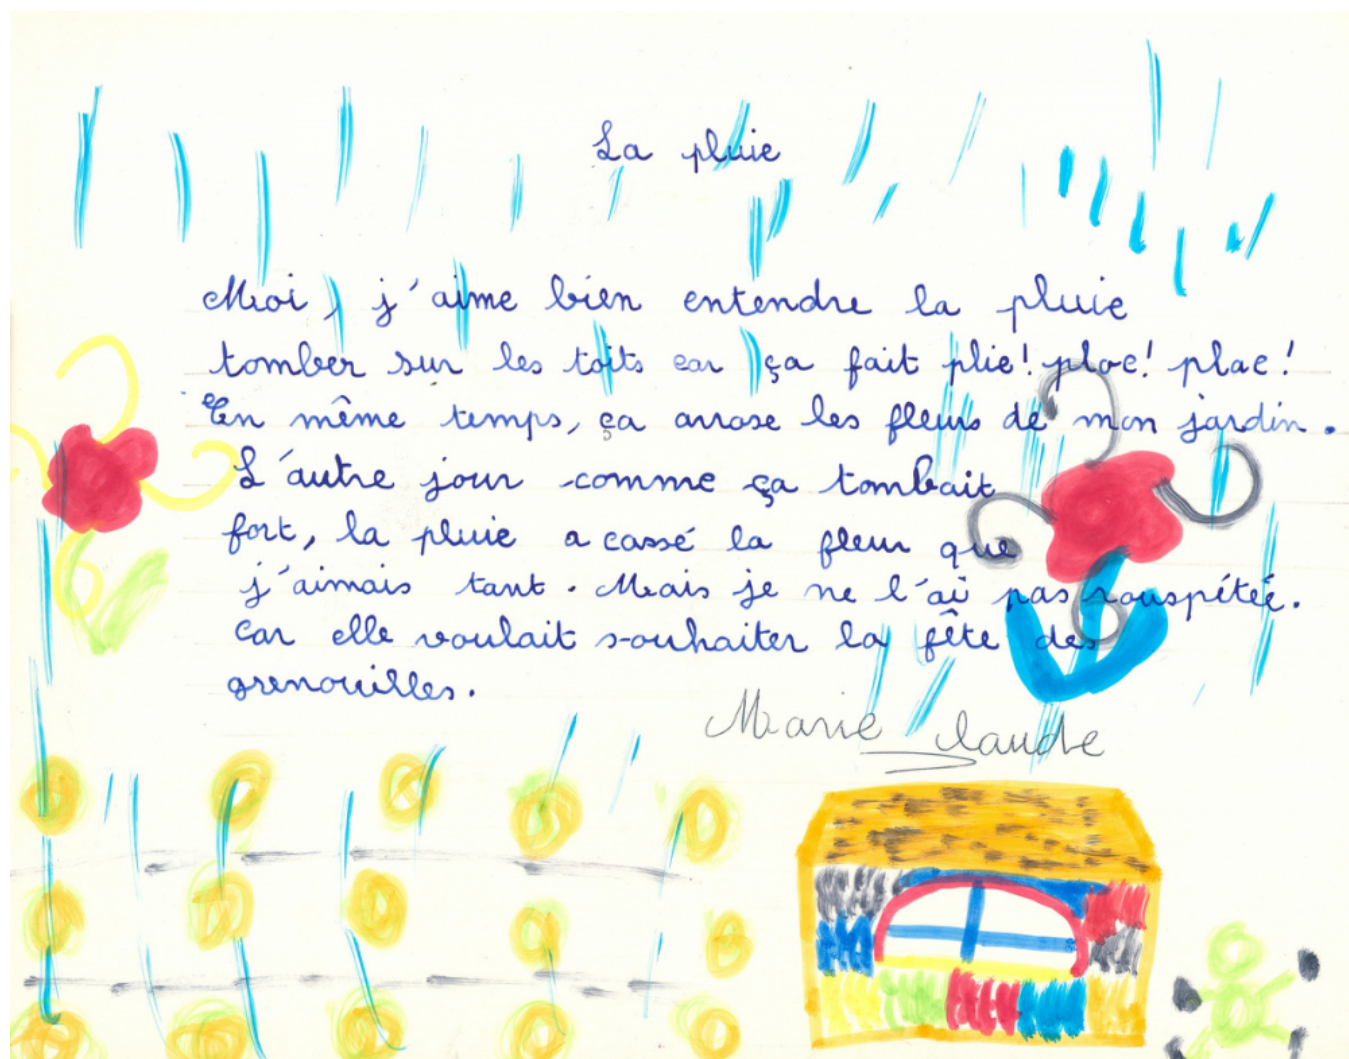 La pluie
Moi, j'aime bien entendre la pluie
tomber sur les toits car ça fait plic! ploc! plac!
En même temps, ça arrose les fleurs de mon jardin.
L'autre jour comme ça tombait
fort, la pluie a cassé la fleur que
j'aimais tant. Mais je ne l'ai pas rouspétée.
Car elle voulait souhaiter la fête des
grenouilles.
Marie Claude